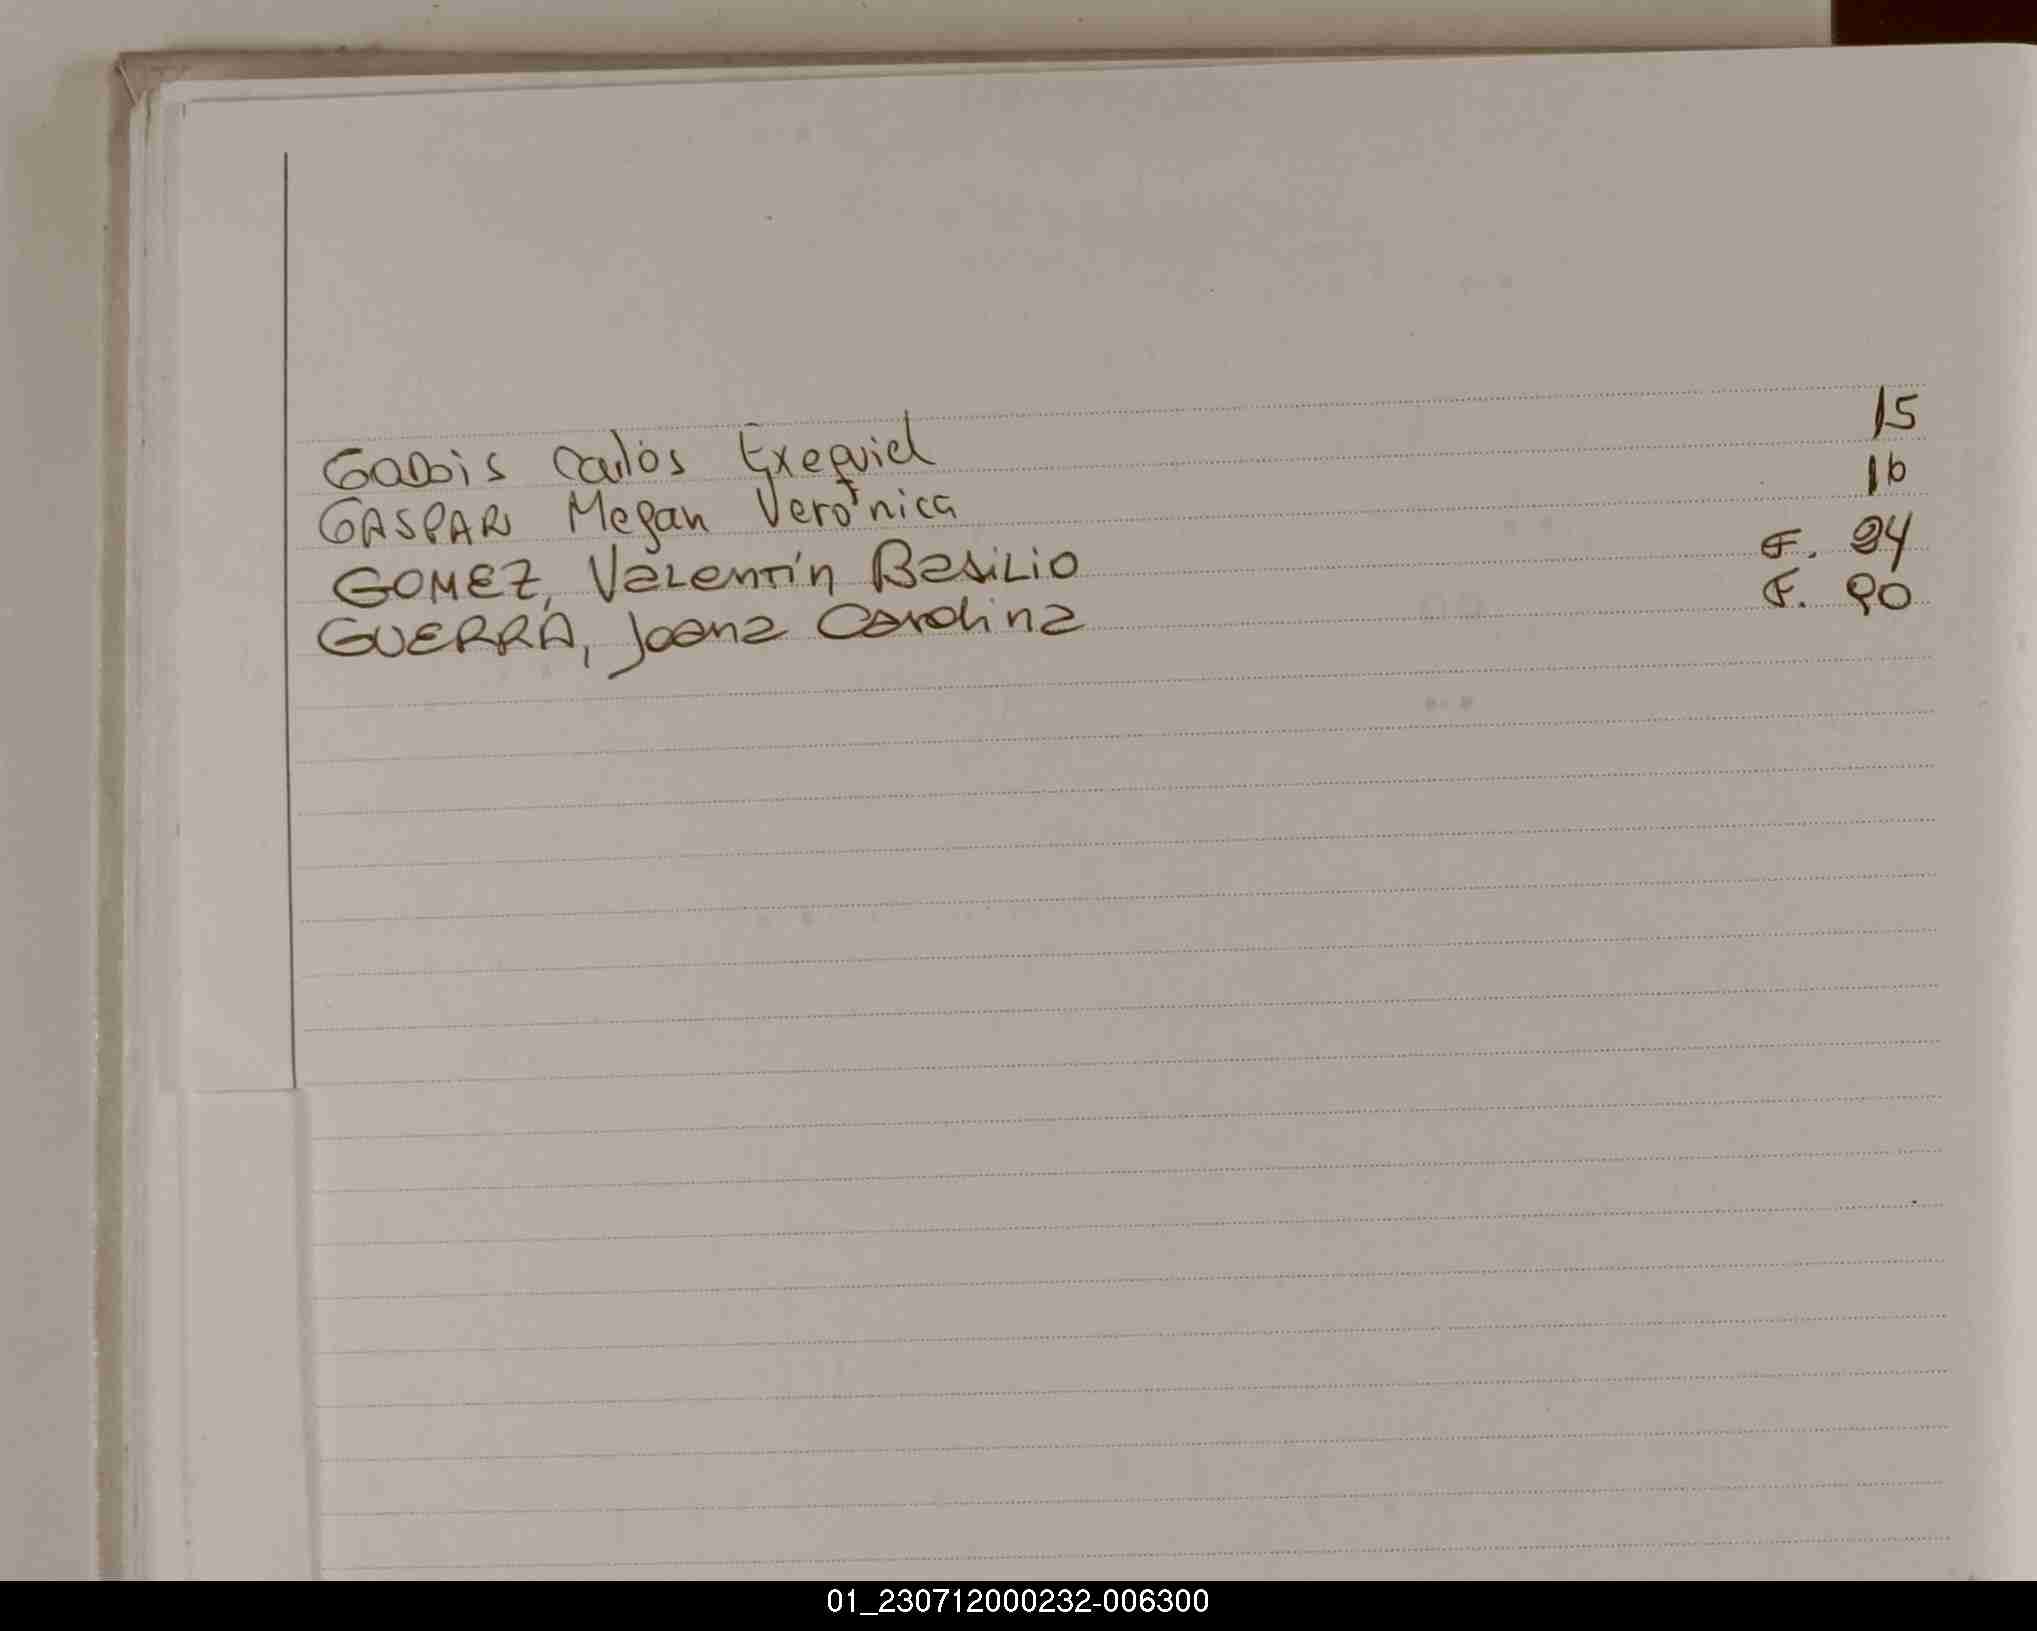 GADOIS Carlos Exequiel 15
GASPAR Megan Verónica 16
GOMEZ, Valentín Basilio F. 94
GUERRA, Joana Carolina F. 90
01_230712000232-006300